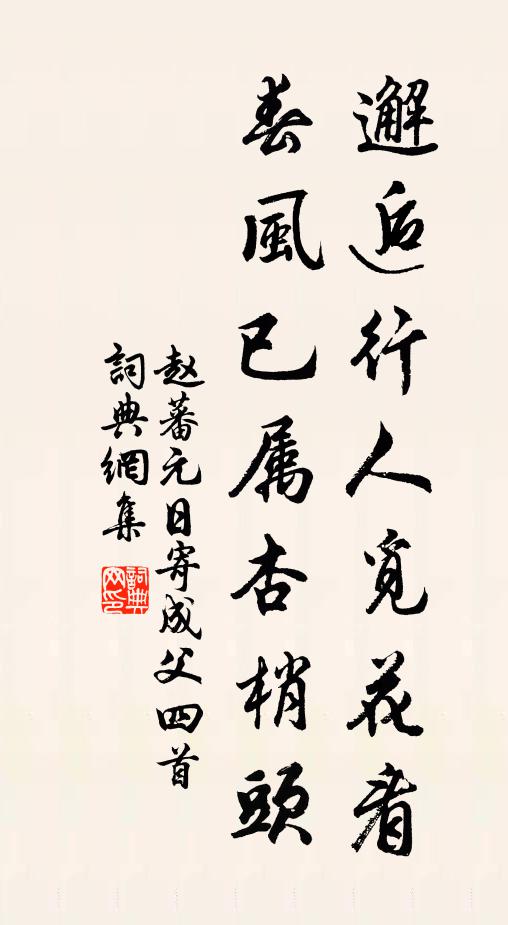 邂逅行人覓花看
春風已属杏梢頭
赵蕃元日寄成父四首
詞典網集
詞典網印